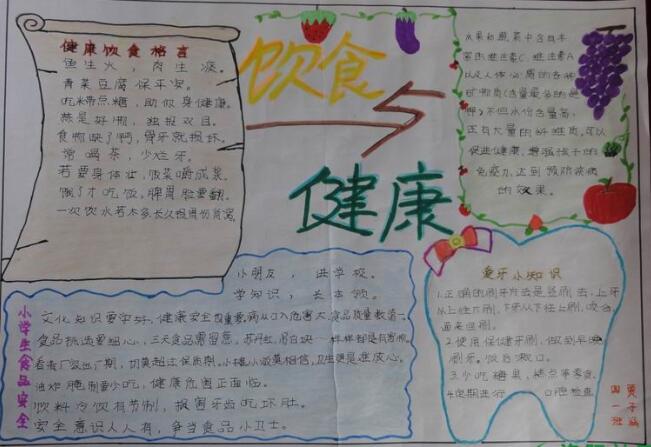 健康饮食格言
鱼生火，肉生痰。
青菜豆腐保平安。
吃米带点糠，助你身健康。
蒜是好物，独损双目。
食物缺了钙，骨牙就损坏。
常喝茶，少烂牙。
若要身体壮，饭菜嚼成浆。
饿了才吃饭，脾胃
一次饮水
饮食
与
健康
水果和蔬菜中含有丰
富的维生素C、维生素A
以及人体必需的各种
矿物质
水份含量高，
还有大量的纤维质，可以
促进健康，增强孩子的
免疫力，达到预防疾病
的效果。
小学生食品安全
小朋友，进学校。
学知识，长本领。
文化知识要学好，健康安全也重要。病从口入危害大，食品质量
食品挑选要细心，三无食品需留意，苏丹红、
看看厂家出厂期，切莫超过保质期。小摊小贩莫相信，卫生
油炸腌制要少吃，健康危害正面临。
饮料冷饮有节制，损害牙齿吃坏肚。
安全意识人人有，争当食品小卫士。
爱牙小知识
1.正确的刷牙方法是竖刷去，上牙
从上往下刷，下牙从下往上刷，咬合
面来回刷。
2.使用保健牙刷，做到早晚
刷牙。饭后漱口。
3.少吃糖果，糕点等零食。
4.定期进行口腔检查
四一班